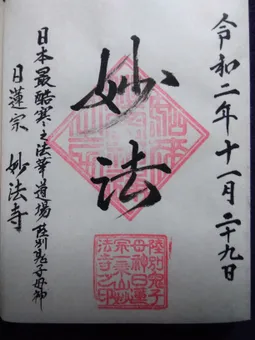 令和二年十一月二十九日
妙法
日本最酷寒之法華道場 陸別鬼子母神
日蓮宗 妙法寺
陸別鬼子
母神日蓮
法寺之印